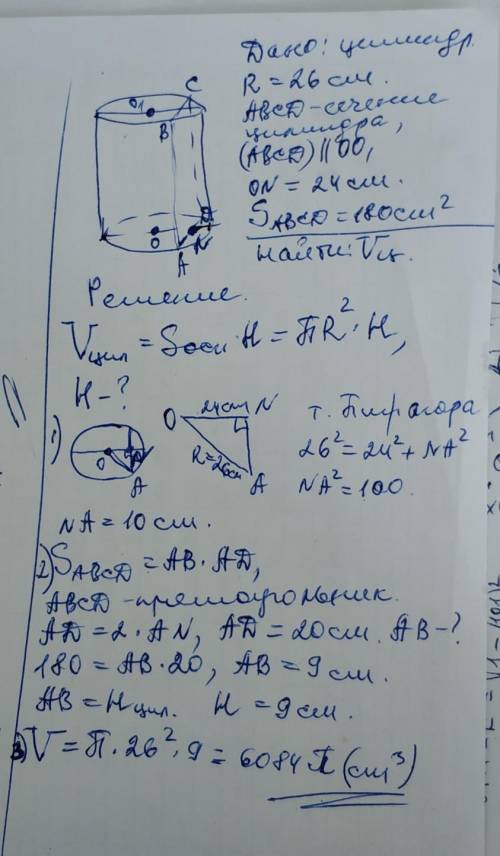 Дано: цилиндр.
R = 26 см.
ABCD - сечение
цилиндра,
(ABCD) || OO₁
ON = 24 см.
S_ABCD = 180 см²
Найти: Vц.
O₁
C
B
O
D
N
A
Решение.
Vцил = Sосн · H = ПR² · H,
H - ?
1)
O
A
O 24 см N
R = 26 см
A
т. Пифагора
26² = 24² + NA²
NA² = 100.
NA = 10 см.
2) S_ABCD = AB · AD,
ABCD - прямоугольник.
AD = 2 · AN, AD = 20 см. AB - ?
180 = AB · 20, AB = 9 см.
AB = H цил. H = 9 см.
3) V = П · 26² · 9 = 6084 П (см³)